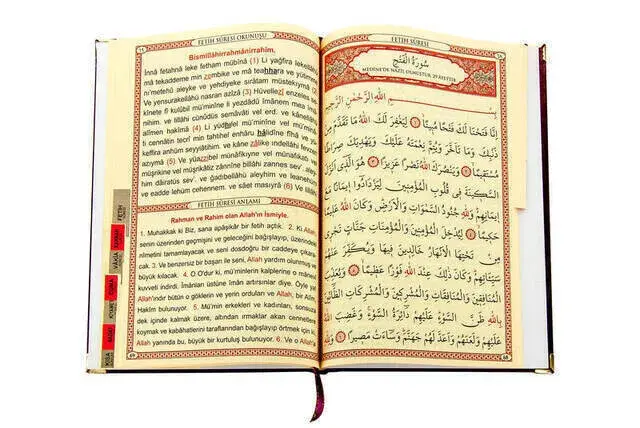 FETİH SÛRESİ OKUNUŞU
Bismillâhirrahmânirrahîm.
İnnâ fetahnâ leke fetham mübînâ (1) Li yağfira lekellâhü
mâ tekaddeme min zembike ve mâ teahhara ve yütimme
ni'metehû aleyke ve yehdiyeke sırâtam müstekıymâ (2)
Ve yensurakellâhü nasran azîzâ (3) Hüvellezî enzeles se
kînete fî kulûbil mü'minîne li yezdâdû îmânem mea îmâ
nihim. ve lillâhi cünûdüs semâvâti vel erd. ve kânellâhü
alîmen hakîmâ (4) Li yüdhılel mü'minîne vel mü'minâti
cennâtin tecrî min tahtihel enhâru hâlidîne fîhâ ve yü
keffira anhüm seyyiâtihim. ve kâne zâlike indellâhi fevzen
azıymâ (5) Ve yüazzibel münâfikıyne vel münâfikâti vel
müşrikîne vel müşrikâtiz zânnîne billâhi zannes sev'. aley
him dâiratüs sev'. ve ğadıbellâhü aleyhim ve leanehüm
ve eadde lehüm cehennem. ve sâet masıyrâ (6) Ve lillâhi
FETİH SÛRESİ ANLAMI
Rahman ve Rahim olan Allah'ın İsmiyle.
1. Muhakkak ki Biz, sana apaçık bir fetih açtık. 2. Ki Allah
senin üzerinden geçmişini ve geleceğini bağışlayıp, üzerindeki
nîmetini tamamlayacak ve seni dosdoğru bir caddeye çıkar
cak. 3. Ve benzersiz bir başarı ile seni, Allah yardım olunmuş ve
büyük kılacak. 4. O O'dur ki, mü'minlerin kalplerine o mânevî
kuvveti indirdi. İmânları üstüne îmân artırsınlar diye. Öyle ya
Allah'ındır bütün o göklerin ve yerin orduları ve Allah, bir Alîm
Hakîm bulunuyor. 5. Mü'min erkekleri ve kadınları, sonsuza
dek içinde kalmak üzere, altından ırmaklar akan cennetlere
koymak ve kabahatlerini taraflarından bağışlayıp örtmek için ki,
Allah yanında bu, büyük bir kurtuluş bulunuyor. 6. Ve o Allah'ı
FETİH
VÂKIA
KISA
FETİH SÛRESİ
سُورَةُ الْفَتْحِ
MEDİNE'DE NÂZİL OLMUŞTUR 29 ÂYETTİR
اللهِ الرَّحْمٰنِ الرَّحِيمِ
اِنَّا فَتَحْنَا لَكَ فَتْحًا مُبِينًا ۝١ لِيَغْفِرَ لَكَ اللهُ مَا تَقَدَّمَ مِنْ
ذَنْبِكَ وَمَا تَاَخَّرَ وَيُتِمَّ نِعْمَتَهُ عَلَيْكَ وَيَهْدِيَكَ صِرَاطًا
مُسْتَقِيمًا ۝٢ وَيَنْصُرَكَ اللهُ نَصْرًا عَزِيزًا ۝٣ هُوَ الَّذِى اَنْزَلَ
السَّكِينَةَ فِى قُلُوبِ الْمُؤْمِنِينَ لِيَزْدَادُوا اِيمَانًا مَعَ
اِيمَانِهِمْ وَلِلّٰهِ جُنُودُ السَّمٰوَاتِ وَالْاَرْضِ وَكَانَ اللهُ عَلِيمًا
حَكِيمًا ۝٤ لِيُدْخِلَ الْمُؤْمِنِينَ وَالْمُؤْمِنَاتِ جَنَّاتٍ تَجْرِى
مِنْ تَحْتِهَا الْاَنْهَارُ خَالِدِينَ فِيهَا وَيُكَفِّرَ عَنْهُمْ
سَيِّئَاتِهِمْ وَكَانَ ذٰلِكَ عِنْدَ اللهِ فَوْزًا عَظِيمًا ۝٥ وَيُعَذِّبَ
الْمُنَافِقِينَ وَالْمُنَافِقَاتِ وَالْمُشْرِكِينَ وَالْمُشْرِكَاتِ الظَّانِّينَ
بِاللهِ ظَنَّ السَّوْءِ عَلَيْهِمْ دَائِرَةُ السَّوْءِ وَغَضِبَ اللهُ
عَلَيْهِمْ وَلَعَنَهُمْ وَاَعَدَّ لَهُمْ جَهَنَّمَ وَسَاءَتْ مَصِيرًا ۝٦ وَلِلّٰهِ